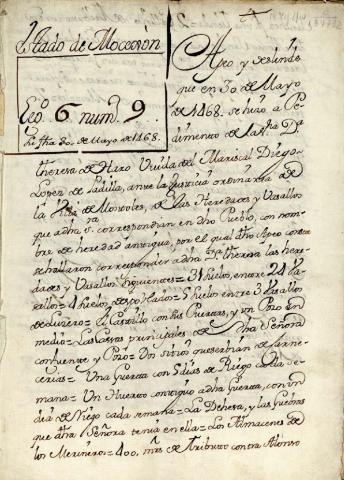 Estado de Mocoron
Leg.º 6 num.º 9
Su fha 30. de Mayo de 1468.
Apeo y deslinde
que en 30 de Mayo
de 1468. se hizo a Pe-
dimento de la Sra Da
theresa de Haro Viuda del Mariscal Diego
Lopez de Padilla, ante la Justicia ordinaria de
la Villa de Mostoles, de las Heredades y Vasallos
que a dha Sra correspondian en dho Pueblo, con nom-
bre de heredad antigua, por el qual dho Apeo consta
se hallaron corresponder a dha Sra theresa las here-
dades y Vasallos siguientes = 31 Suelos, entre 24 Va-
sallos = 4 Suelos despoblados = 5 Suelos entre 3 Vasallos
de = el Castillo con sus Puertas, y un Pozo en
medio = Las Casas principales de dha Señora
con fuente y Pozo = Dos sitios que serbian de Carne-
cerias = Una Guerta con 5 dias de Riego cada se-
mana = Un Huerto contiguo a dha Guerta, con un
dia de Riego cada semana = La Dehesa, y las
que dha Señora tenia en ella = Los Almacenes de
los = 400. mrs de tributo contra Alonso